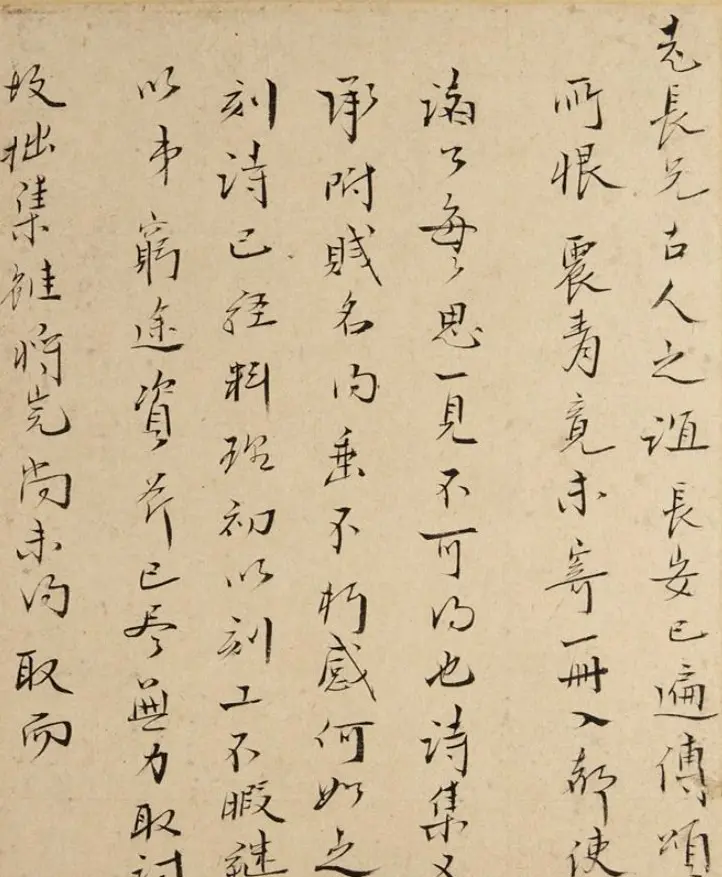 老長兄古人之誼長安已遍傳頌
所恨震青竟未寄一冊入都使
每每思一見不可得也詩集又
承附賤名得垂不朽感何如之
刻詩已経料理初以刻工不暇繼
以弟窮途資斧已尽無力取討
故拙集雖將完尚未得取而